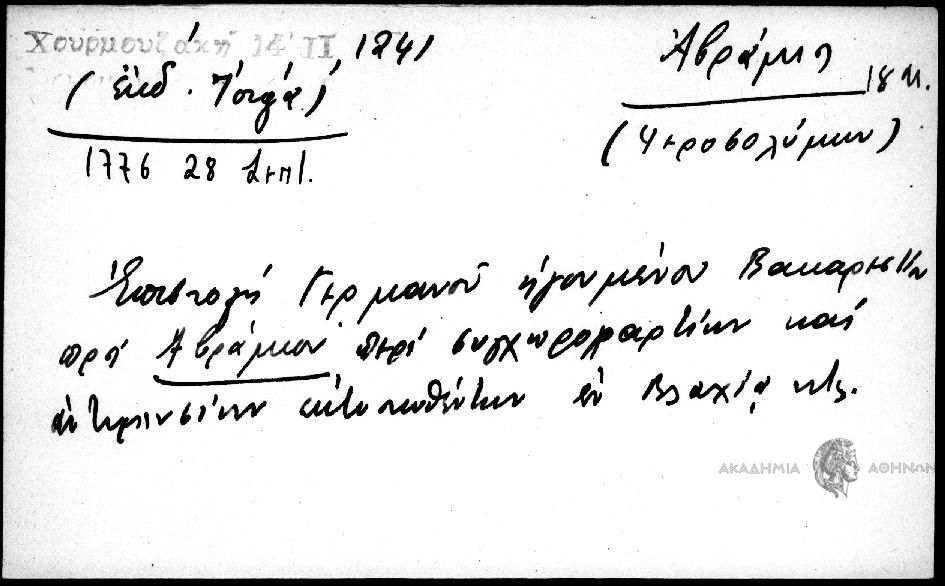 Χουρμουζάκη 14' II, 1241
(ἐκδ. Ἰόργα)
1776 28 Σεπτ.
Ἀβράμιος 18 αἰ.
(Ἱεροσολύμων)
Ἐπιστολή Γερμανοῦ ἡγουμένου Βακαρεστίου
πρός Ἀβράμιον περί συγχωροχαρτίων καί
ἐκτυπωθέντων ἐν Βλαχίᾳ κτλ.
ΑΚΑΔΗΜΙΑ ΑΘΗΝΩΝ